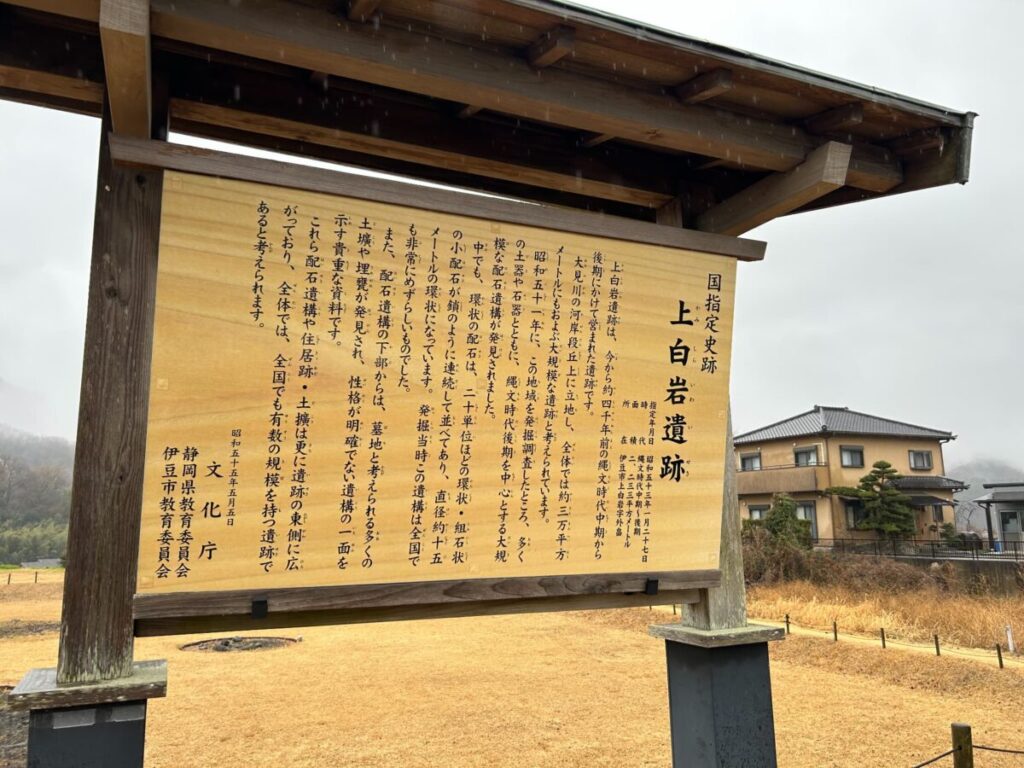 国指定史跡
上白岩遺跡
かみしらいわいせき
指定年月日 昭和五十三年一月二十七日
時代 縄文時代中期〜後期
面積 二、二三三平方メートル
所在 伊豆市上白岩字外畠
上白岩遺跡は、今から約四千年前の縄文時代中期から
後期にかけて営まれた遺跡です。
大見川の河岸段丘上に立地し、全体では約三万平方
メートルにもおよぶ大規模な遺跡と考えられています。
昭和五十一年に、この地域を発掘調査したところ、多く
の土器や石器とともに、縄文時代後期を中心とする大規
模な配石遺構が発見されました。
中でも、環状の配石は、二十単位ほどの環状・組石状
の小配石が鎖のように連続して並べてあり、直径約十五
メートルの環状になっています。発掘当時この遺構は全国で
も非常にめずらしいものでした。
また、配石遺構の下部からは、墓地と考えられる多くの
土壙や埋甕が発見され、性格が明確でない遺構の一面を
示す貴重な資料です。
これら配石遺構や住居跡・土壙は更に遺跡の東側に広
がっており、全体では、全国でも有数の規模を持つ遺跡で
あると考えられます。
昭和五十五年五月五日
文化庁
静岡県教育委員会
伊豆市教育委員会